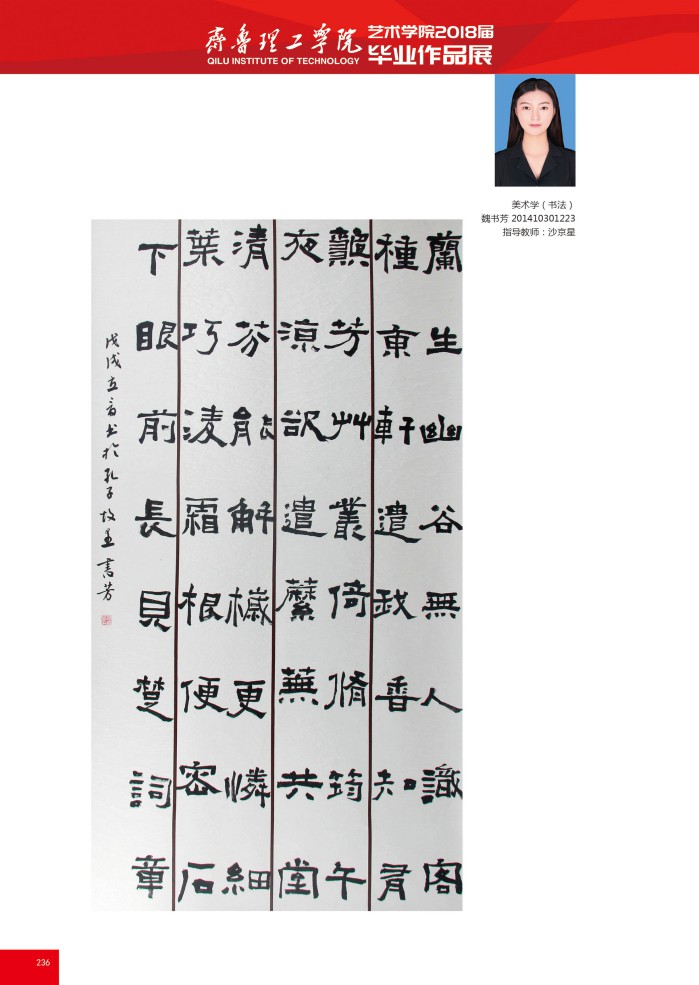 齊魯理工學院
QILU INSTITUTE OF TECHNOLOGY
艺术学院2018届
毕业作品展
美术学（书法）
魏书芳 201410301223
指导教师：沙京星
蘭生幽谷無人識客
種東軒遣我香知有
龝芳艸叢倚脩筠午
夜涼欲遣蘼蕪共堂
清芬能解穢更憐細
葉巧凌霜根便密石
下眼前長見楚詞章
戊戌立春书於孔子故里 書芳
236